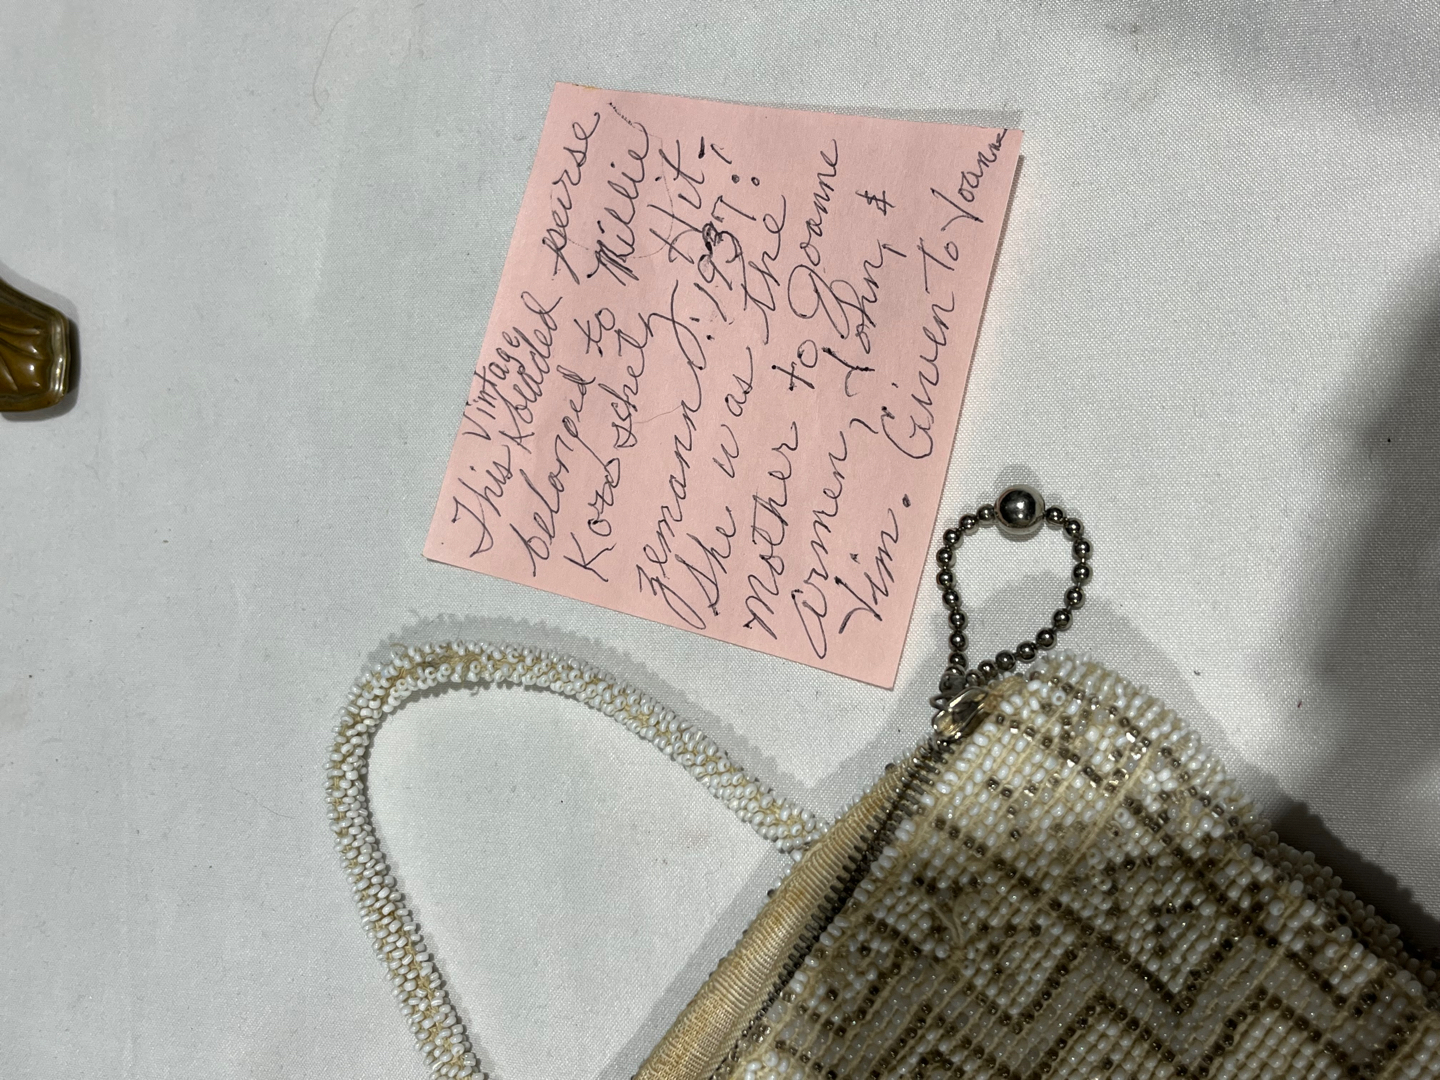 This Vintage
beaded purse
belonged to Millie
Koroschetz
Zemann J. Hit-
She was the 1937??
Mother to Joanne
Armen, John, &
Jim. Given to Joanne